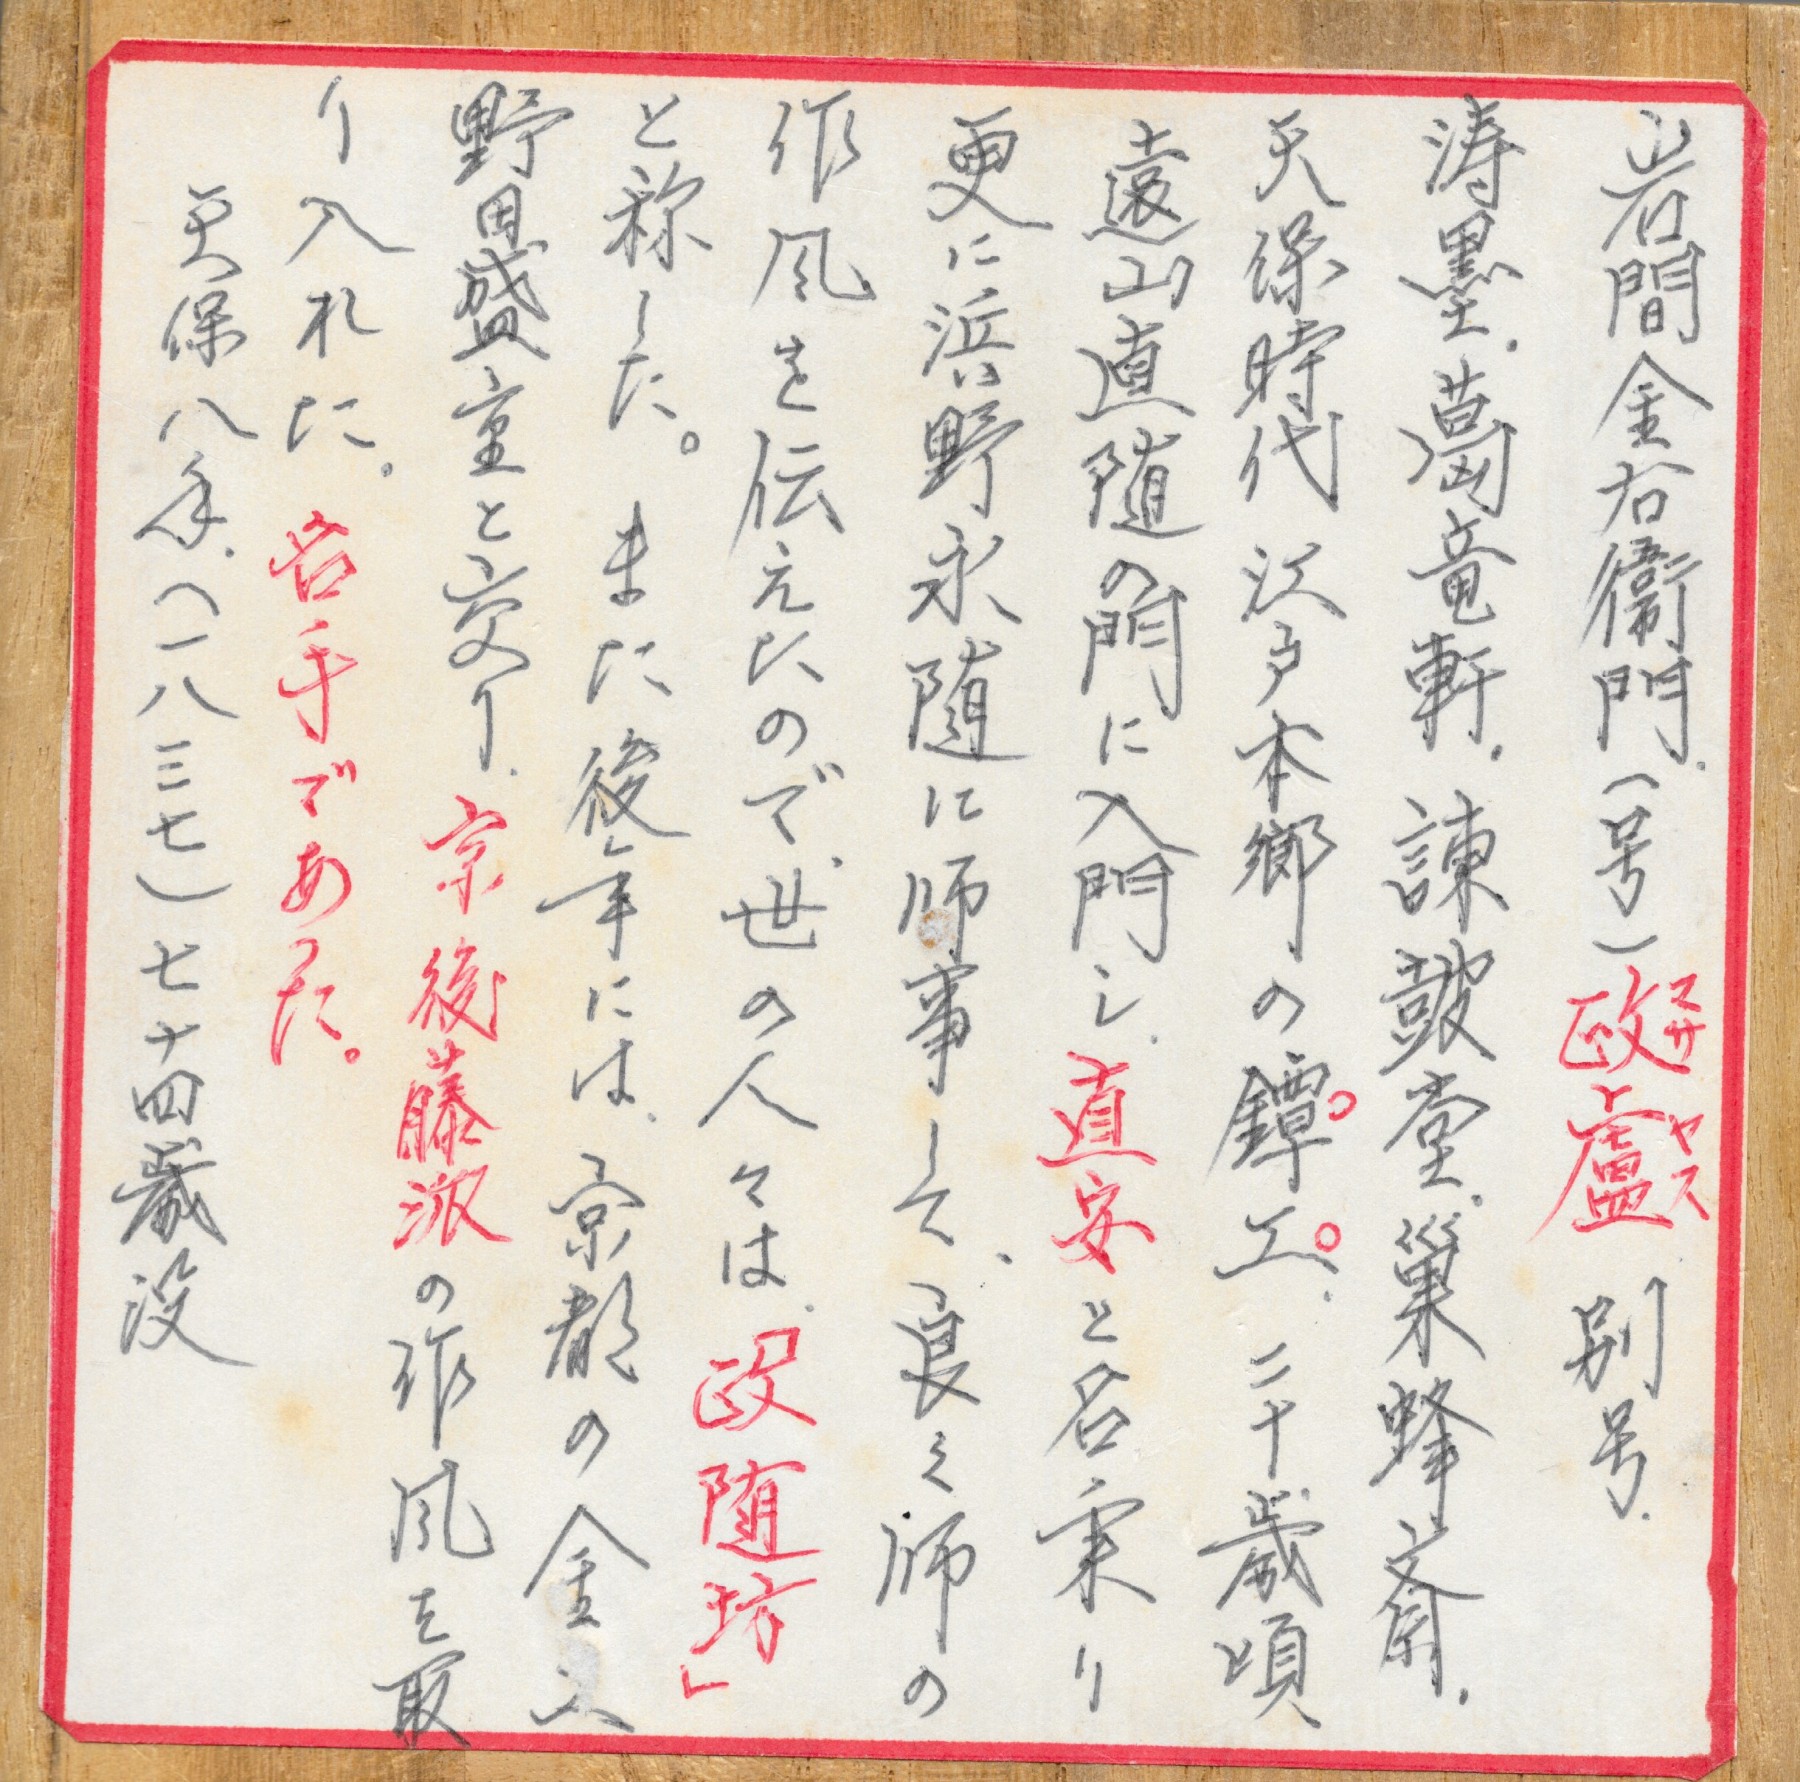 岩間金右衛門、(号)政盧マサヤス 別号、
涛墨、葛竜軒、諌皷堂、巣蜂斎、
天保時代 江戸本郷の鐔工、二十歳頃
遠山直随の門に入門し、直安と名乗り
更に浜野永随に師事して、良く師の
作風を伝えたので、世の人々は、「政随坊」
と称した。また後年には、京都の金工
野田盛重と交り、京後藤派の作風を取
り入れた。名手であった。
天保八年、(一八三七)七十四歳没